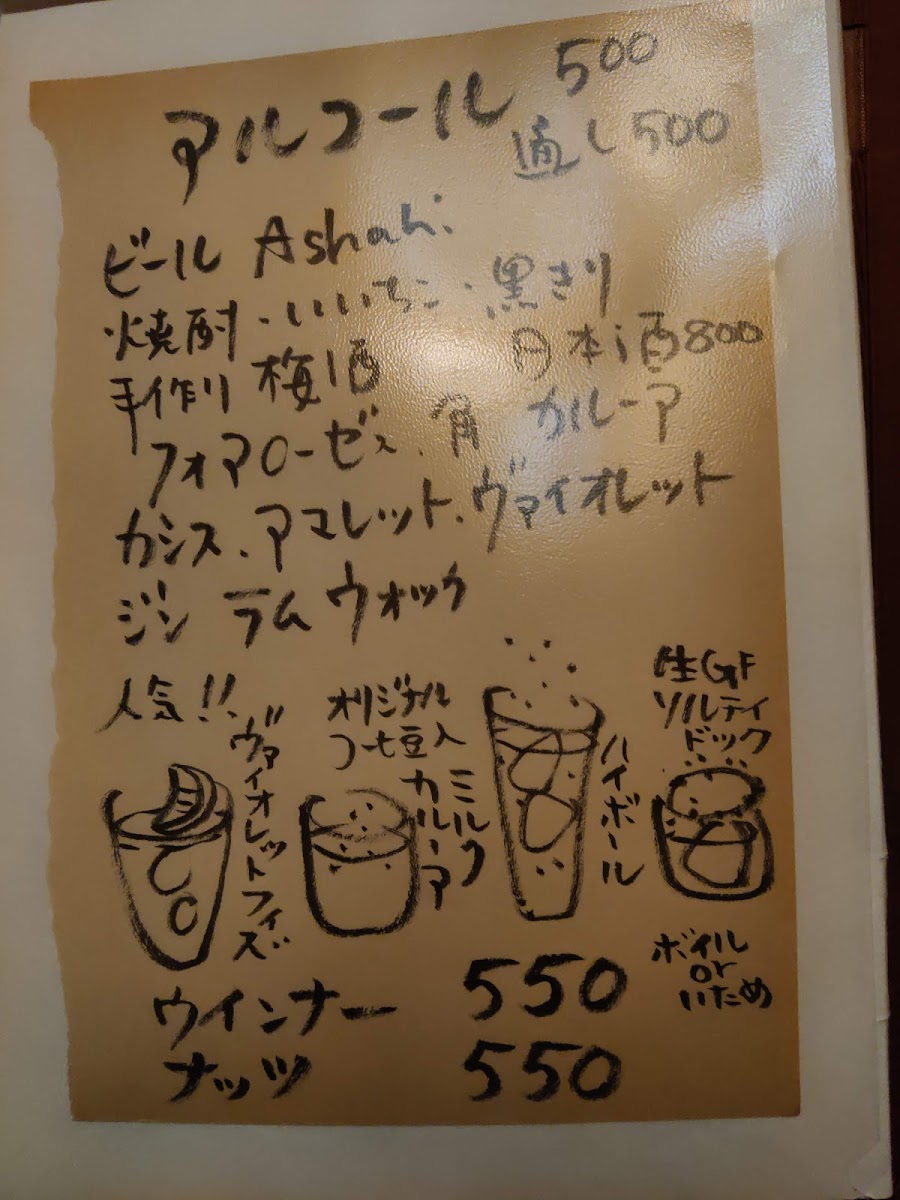 アルコール 500
通し500
ビール Ashahi
焼酎・いいちこ・黒きり
手作り 梅酒 日本酒800
フォアローゼス、角 カルーア
カシス、アマレット、ヴァイオレット
ジン ラム ウォッカ
人気!!
ヴァイオレットフィズ
オリジナル
コーヒ豆入
カルーア
ミルク
ハイボール
生GF
ソルティ
ドック
ウインナー 550
ボイル
or
いため
ナッツ 550